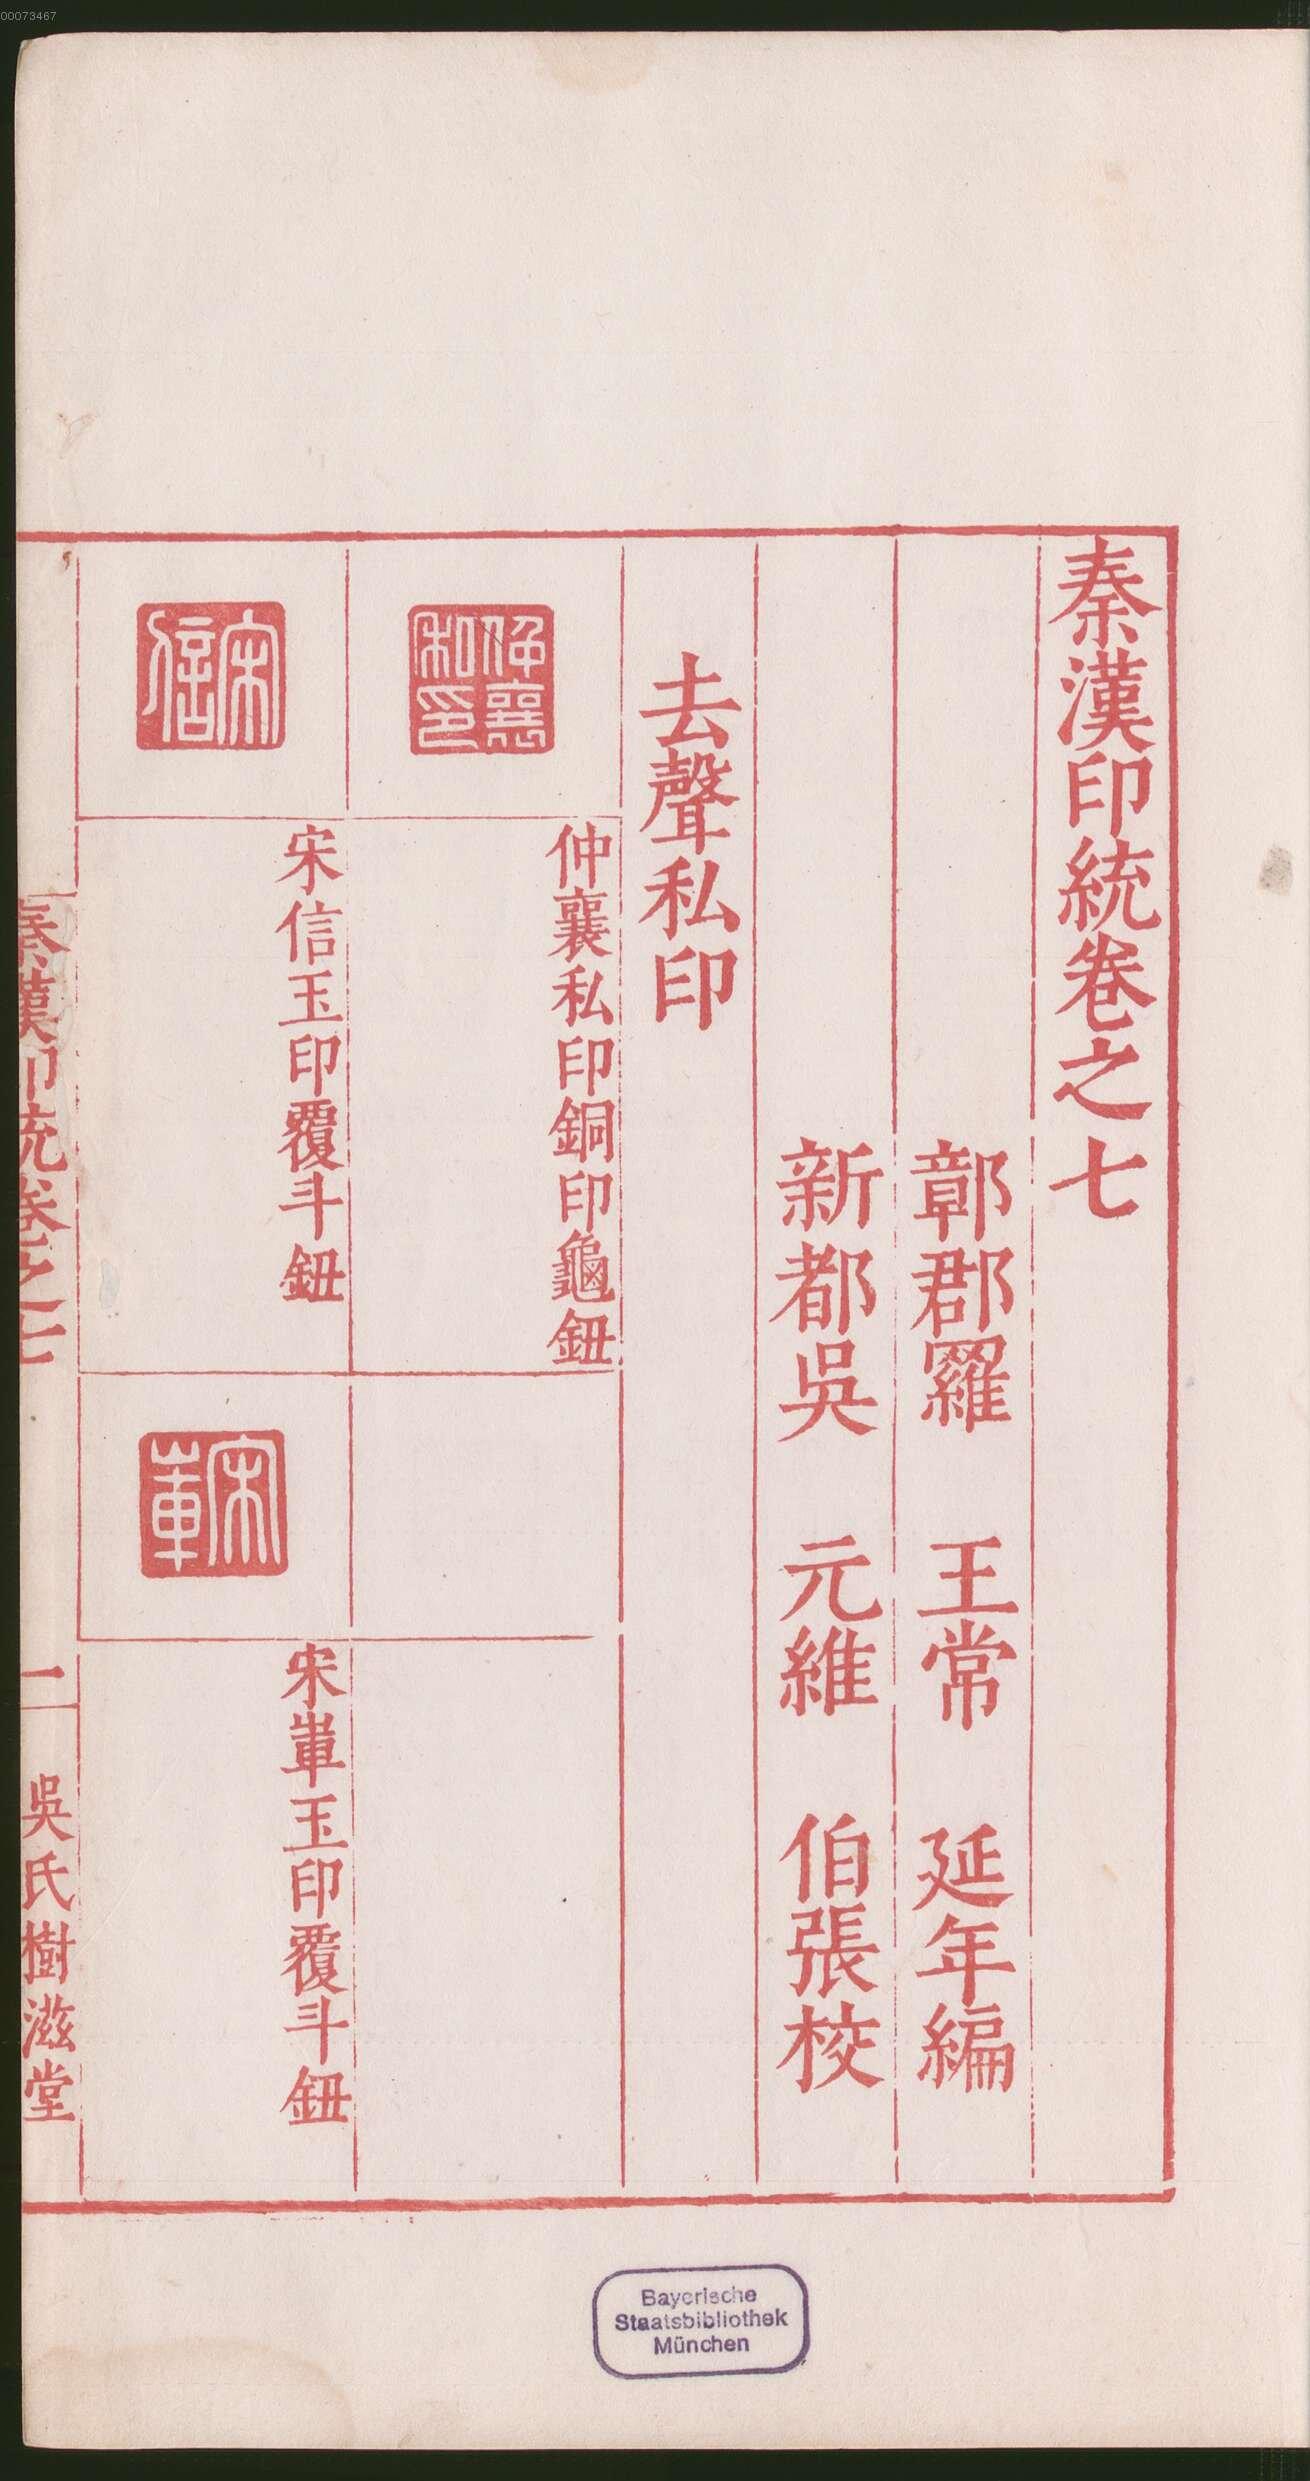 00073467
秦漢印統卷之七
鄣郡羅 王常 延年編
新都吳 元維 伯張校
去聲私印
仲襄私印
仲襄私印銅印龜鈕
宋信
宋信玉印覆斗鈕
宋
宋 玉印覆斗鈕
秦漢印統卷之七
一 吳氏樹滋堂
Bayerische
Staatsbibliothek
München